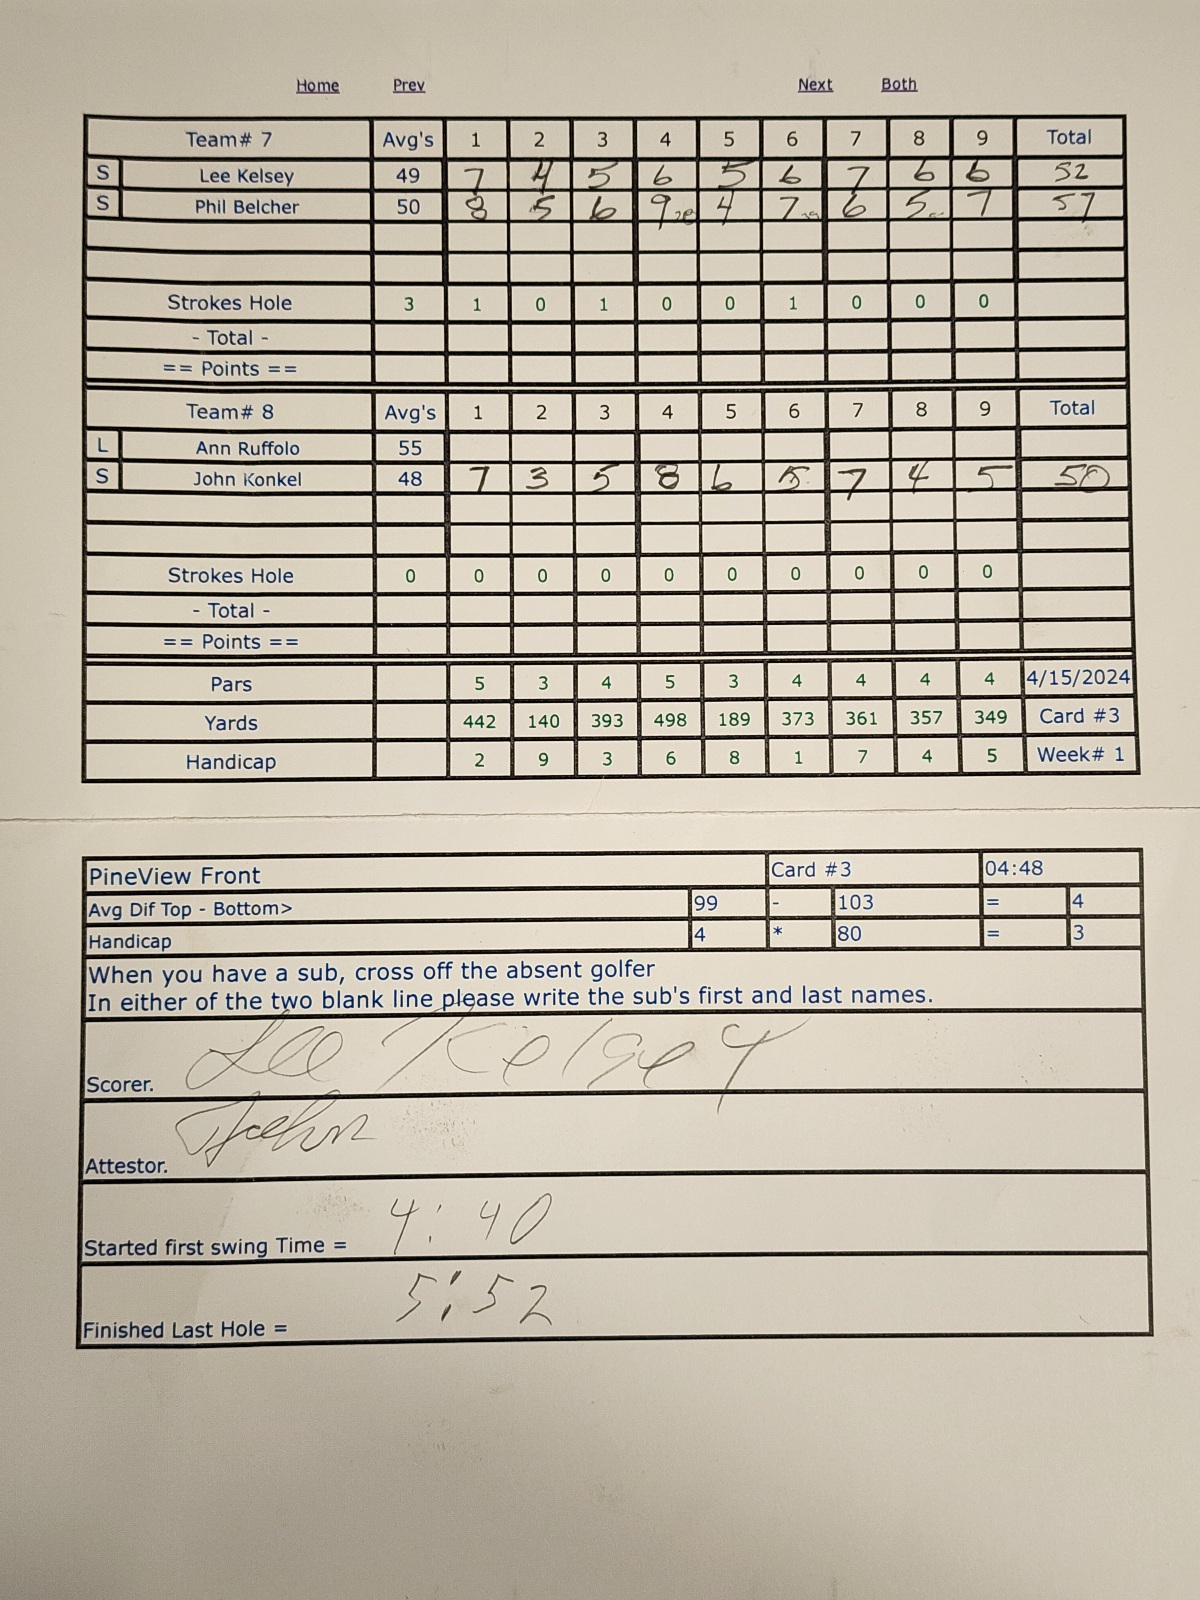 Home Prev Next Both
Team# 7 Avg's 1 2 3 4 5 6 7 8 9 Total
S Lee Kelsey 49 7 4 5 6 5 6 7 6 6 52
S Phil Belcher 50 8 5 6 9 4 7 6 5 7 57
Strokes Hole 3 1 0 1 0 0 1 0 0 0
- Total -
== Points ==
Team# 8 Avg's 1 2 3 4 5 6 7 8 9 Total
L Ann Ruffolo 55
S John Konkel 48 7 3 5 8 6 5 7 4 5 50
Strokes Hole 0 0 0 0 0 0 0 0 0 0
- Total -
== Points ==
Pars 5 3 4 5 3 4 4 4 4 4/15/2024
Yards 442 140 393 498 189 373 361 357 349 Card #3
Handicap 2 9 3 6 8 1 7 4 5 Week# 1
PineView Front Card #3 04:48
Avg Dif Top - Bottom> 99 - 103 = 4
Handicap 4 * 80 = 3
When you have a sub, cross off the absent golfer
In either of the two blank line please write the sub's first and last names.
Scorer. Lee Kelsey
Attestor. John
Started first swing Time = 4:40
Finished Last Hole = 5:52